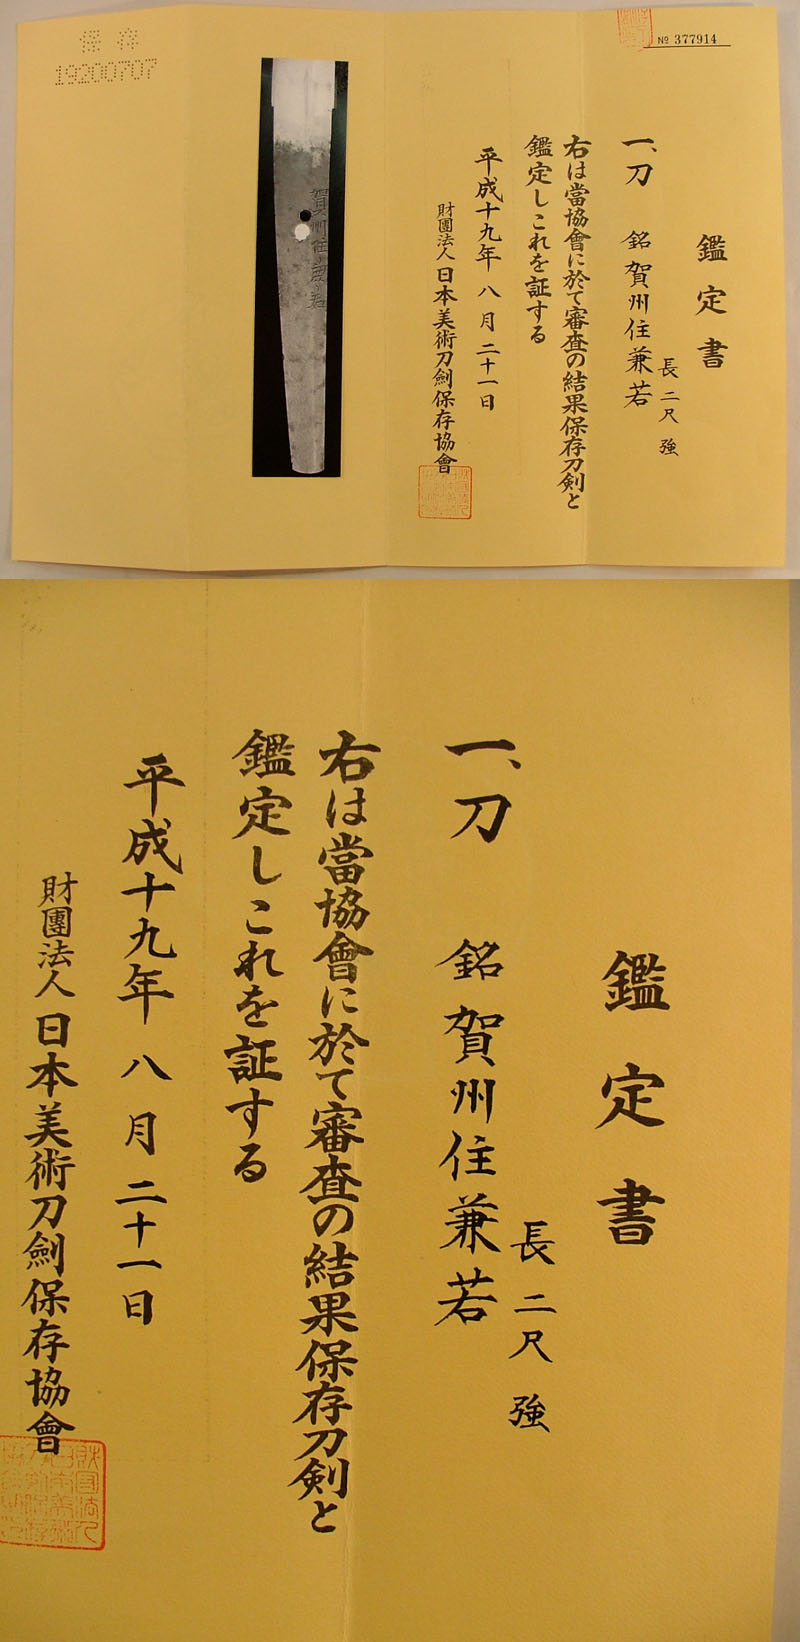 № 377914
鑑定書
一、刀 銘 賀州住兼若
長二尺強
右は當協會に於て審査の結果保存刀剣と
鑑定しこれを証する
平成十九年八月二十一日
財團法人日本美術刀劍保存協會
賀州住兼若
保存
19200707
鑑定書
一、刀 銘 賀州住兼若
長二尺強
右は當協會に於て審査の結果保存刀剣と
鑑定しこれを証する
平成十九年八月二十一日
財團法人日本美術刀劍保存協會